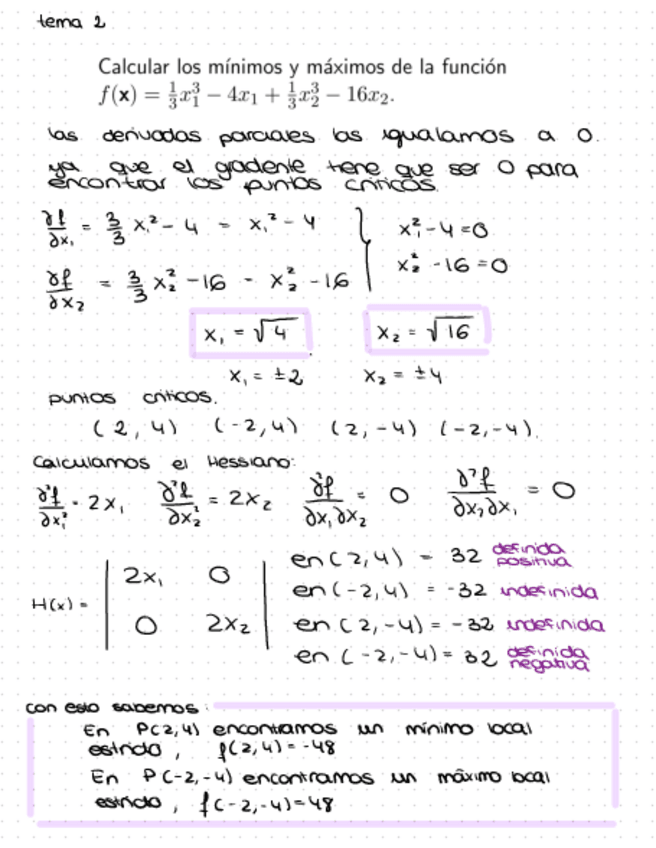 tema 2
Calcular los mínimos y máximos de la función
f(x) = 1/3 x₁³ − 4x₁ + 1/3 x₂³ − 16x₂.
las derivadas parciales las igualamos a 0.
ya que el gradiente tiene que ser 0 para
encontrar los puntos críticos.
∂f/∂x₁ = 3/3 x₁² − 4 = x₁² − 4
x₁² − 4 = 0
∂f/∂x₂ = 3/3 x₂² − 16 = x₂² − 16
x₂² − 16 = 0
x₁ = √4 x₂ = √16
x₁ = ±2 x₂ = ±4
puntos críticos.
(2, 4) (−2, 4) (2, −4) (−2, −4).
Calculamos el Hessiano:
∂²f/∂x₁² = 2x₁ ∂²f/∂x₂² = 2x₂ ∂²f/∂x₁∂x₂ = 0 ∂²f/∂x₂∂x₁ = 0
H(x) = | 2x₁ 0 |
| 0 2x₂ |
en (2, 4) = 32 definida positiva
en (−2, 4) = −32 indefinida
en (2, −4) = −32 indefinida
en (−2, −4) = 32 definida negativa
con esto sabemos:
En P(2, 4) encontramos un mínimo local
estricto, f(2, 4) = −48
En P(−2, −4) encontramos un máximo local
estricto, f(−2, −4) = 48